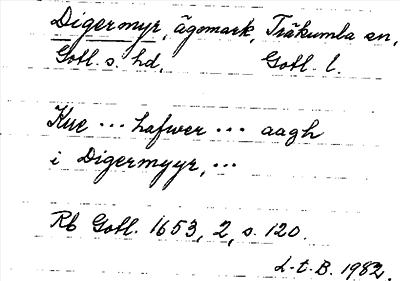 Digermyr, ägomark, Träkumla sn,
Gotl. s. hd, Gotl. l.
Kue ... hafwer ... aagh
i Digermyyr, ...
Rb Gotl. 1653, 2, s. 120.
L-t-B. 1982.